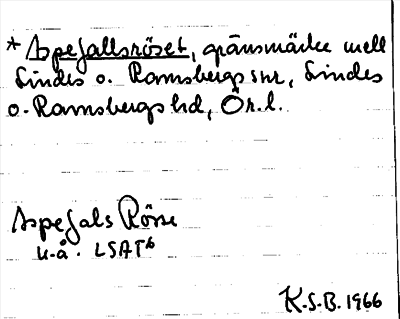 * Aspefallsröset, gränsmärke mell
Lindes o. Ramsbergs snr, Lindes
o. Ramsbergs hd, Ör. l.
Aspefals Rösse
u.å. LSAT b
K.S.B. 1966